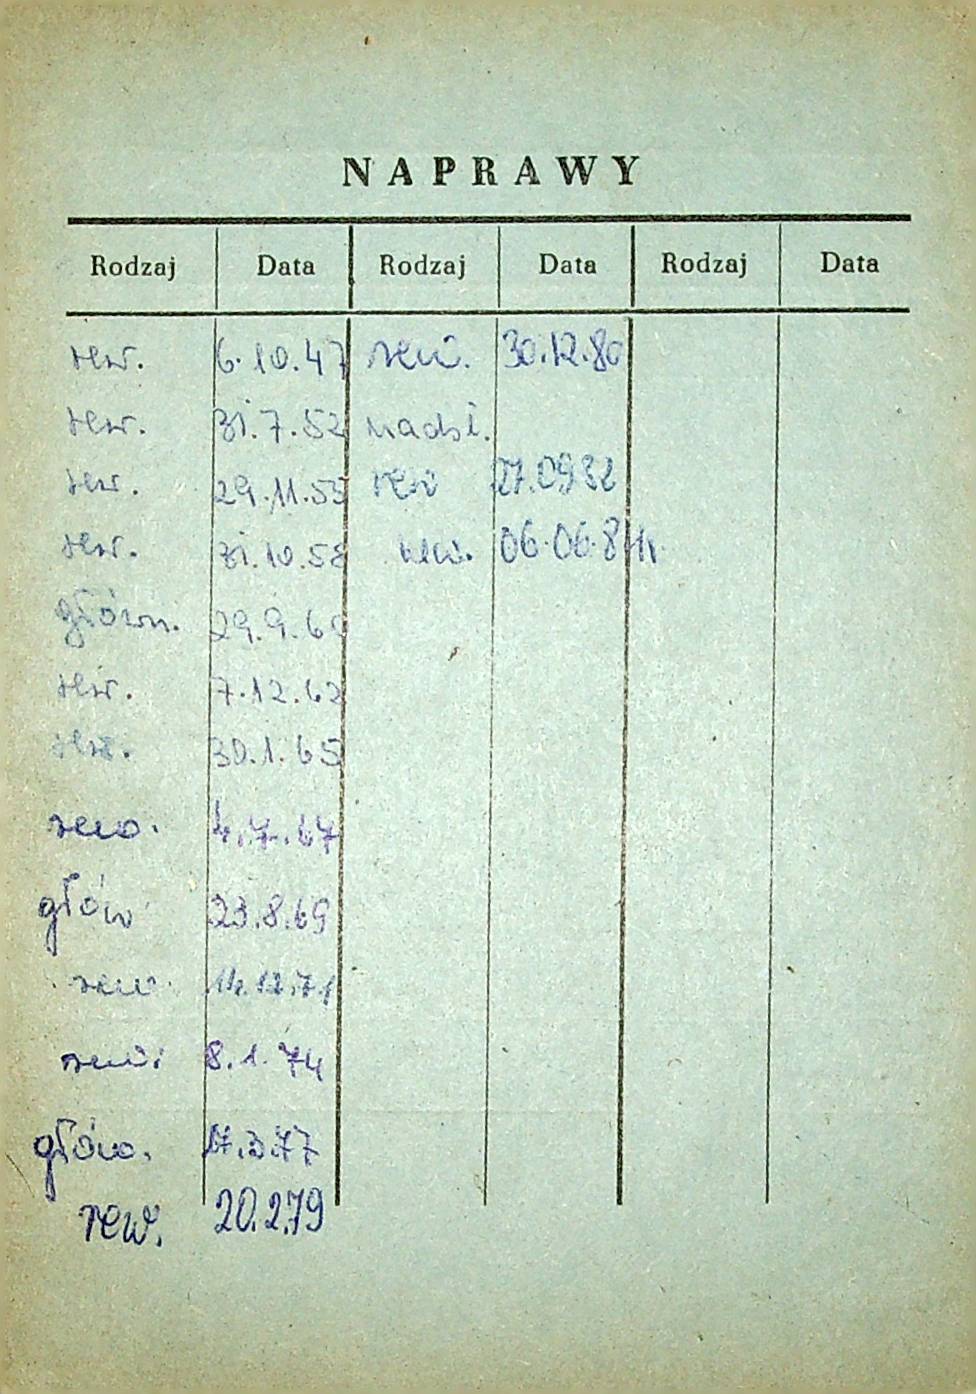 NAPRAWY
Rodzaj Data Rodzaj Data Rodzaj Data
rew. 6.10.47 rew. 30.12.80
rew. 31.7.52 nadsł.
rew. 29.11.55 rew 27.0982
rew. 31.10.58 rew. 06.06.84r.
główn. 29.9.60
rew. 7.12.62
rew. 30.1.65
rew. 4.7.67
głów 23.8.69
rew. 14.12.71
rew. 8.1.74
głów. 17.3.77
rew. 20.2.79